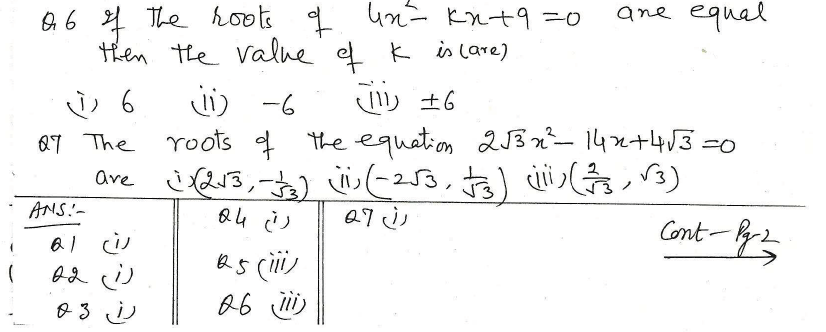 Q6 If the roots of 4x² - kx+9 =0 are equal
then the value of k is (are)
(i) 6 (ii) -6 (iii) ±6
Q7 The roots of the equation 2√3x² - 14x+4√3 =0
are (i) (2√3, -1/√3) (ii) (-2√3, 1/√3) (iii) (2/√3, √3)
ANS:- Q4 (i) Q7 (i)
Q1 (i) Cont - Pg-2
Q2 (i) Q5 (iii)
Q3 (i) Q6 (iii)